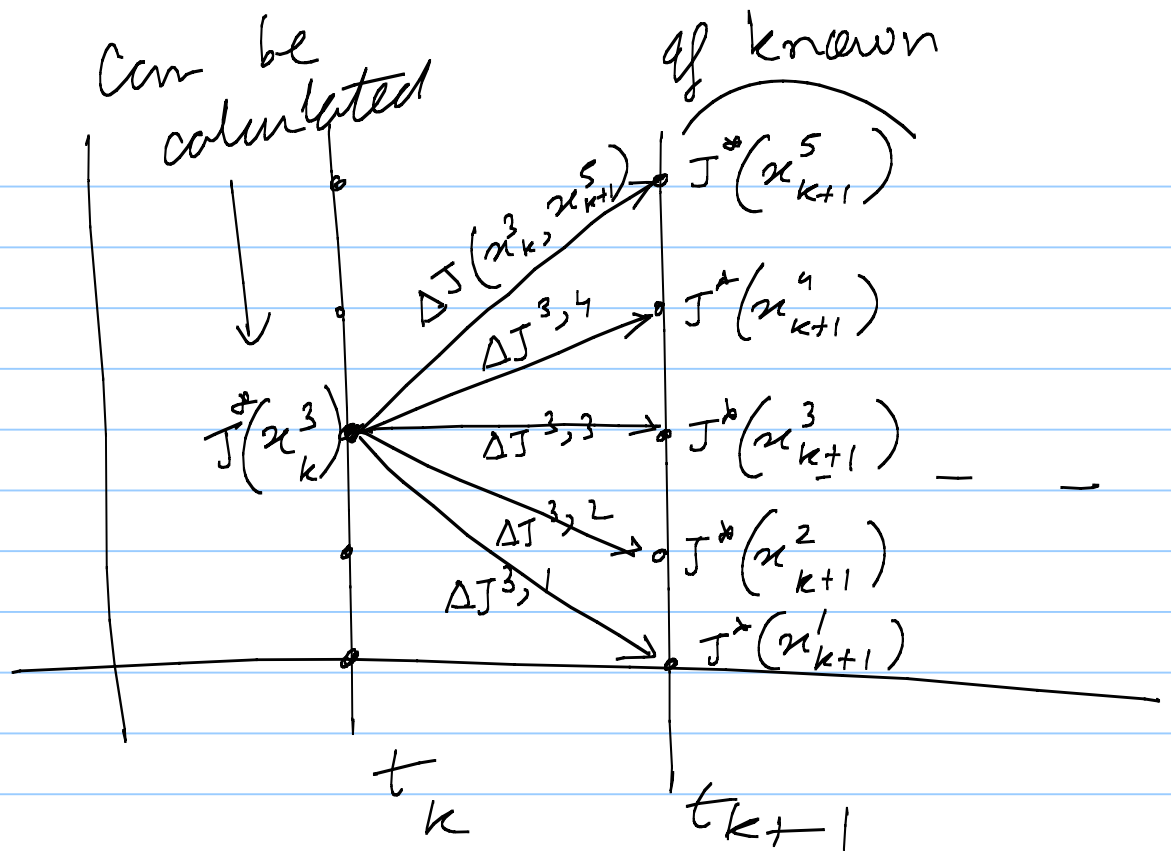 Can be
calculated
If known
J*(x^5_{k+1})
ΔJ(x^3_k, x^5_{k+1})
J*(x^4_{k+1})
ΔJ^{3,4}
J*(x^3_k)
ΔJ^{3,3}
J*(x^3_{k+1}) _ _
ΔJ^{3,2}
J*(x^2_{k+1})
ΔJ^{3,1}
J*(x^1_{k+1})
t_k
t_{k+1}